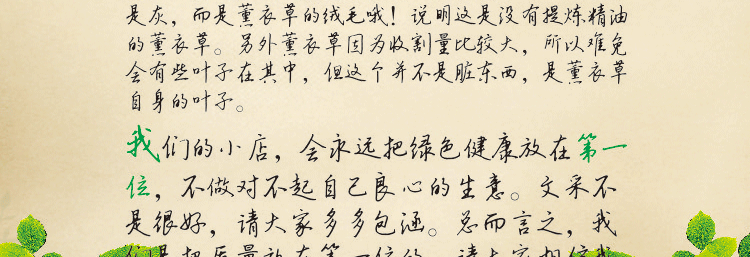 是灰，而是薰衣草的绒毛哦！说明这是没有提炼精油
的薰衣草。另外薰衣草因为收割量比较大，所以难免
会有些叶子在其中，但这个并不是脏东西，是薰衣草
自身的叶子。
我们的小店，会永远把绿色健康放在第一
位，不做对不起自己良心的生意。文采不
是很好，请大家多多包涵。总而言之，我
们是把质量放在第一位的，请大家相信我